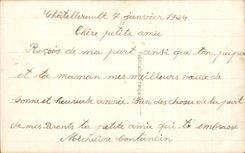 Châtellerault 7 janvier 1924
Chère petite amie
Reçois de ma part ainsi que ton papa
et ta maman mes meilleurs vœux de
bonne et heureuse année. Bien des choses de la part
de mes Parents ta petite amie qui t'embrasse